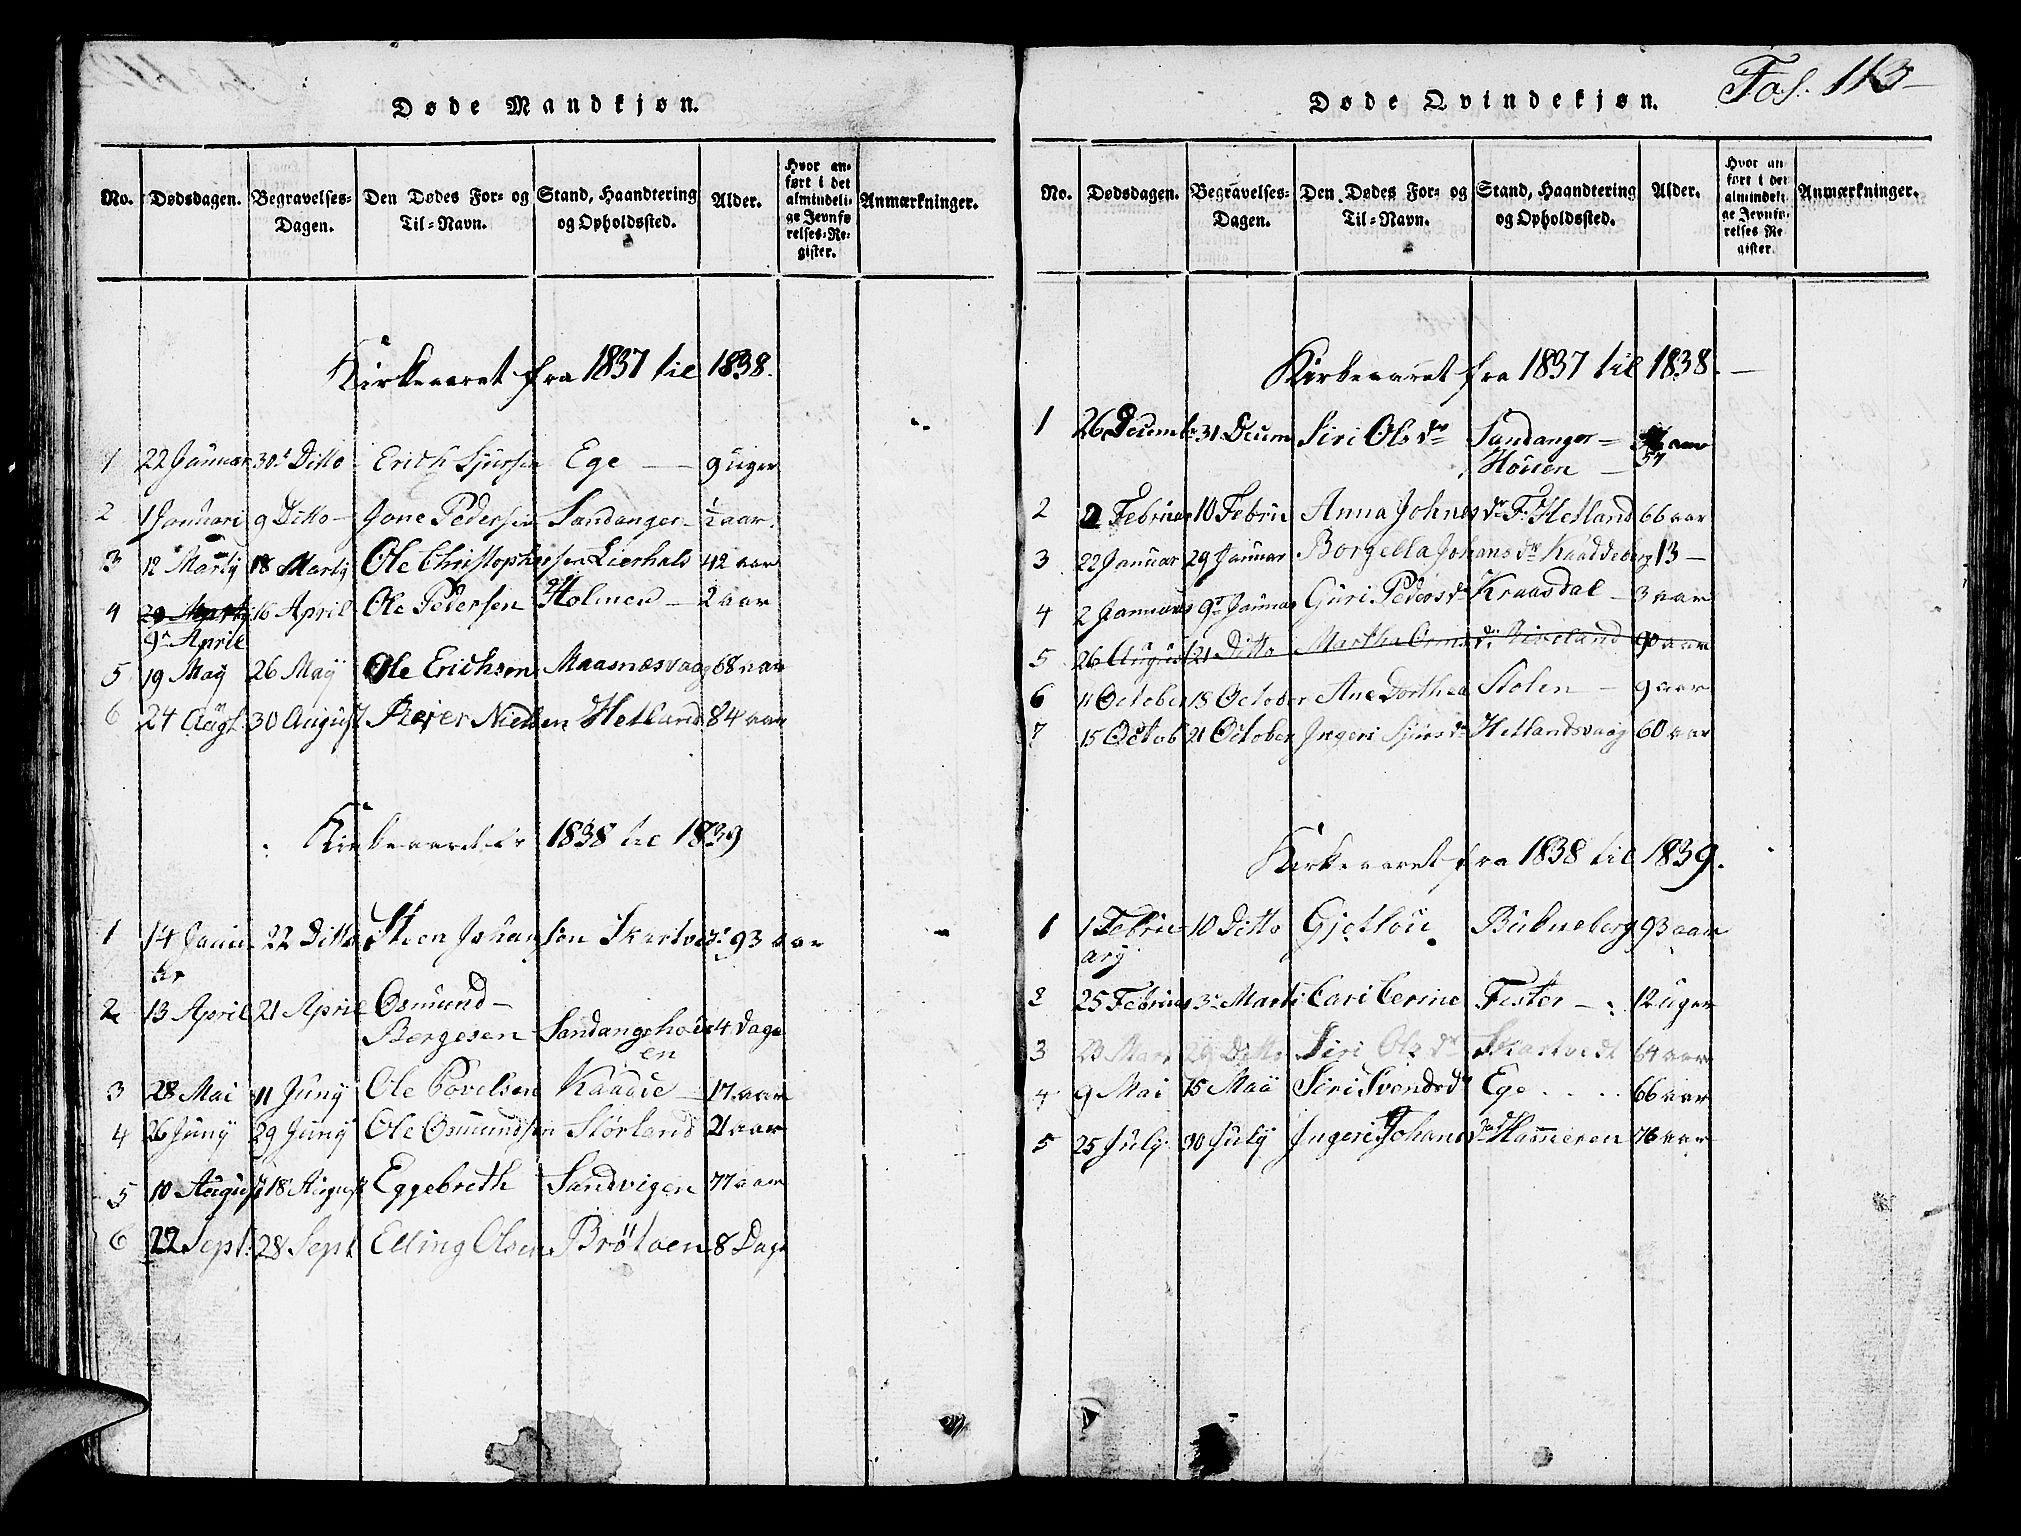 Døde Mandkjøn.
No. Dødsdagen. Begravelses-Dagen. Den Dødes For- og Til-Navn. Stand, Haandtering og Opholdssted. Alder. Hvor anført i det almindelige Jevnførelses-Register. Anmærkninger.
Kirkeaaret fra 1837 til 1838.
1 22 Januar 30t Ditto Erich Sjursen Ege 9 uger
2 1 Januari 9 Ditto Jone Pedersen Sandanger ½ aar.
3 12 Martij 18 Martij Ole Christophersen Lierhals 42 aar
4 16 April Ole Pedersen Holmen 2 aar
9r April
5 19 Maÿ 26 Maÿ Ole Erichsen Maasnæsvaag 68 aar
6 24 Aügt. 30 August Reier Nielsen Hetland 84 aar
Kirkeaaret 1838 til 1839
1 14 Janu 22 Ditto Steen Johanson Skartve 93 aar
ar
2 13 April 21 April Osmund
Bergesen Sandangehou 4 Dage
en
3 28 Mai 11 Junÿ Ole Povelsen Kaade 17 aar
4 26 Junÿ 29 Junÿ Ole Osmundsen Størland 21 aar
5 10 August 18 August Eggebreth Sandvigen 77 aar
6 22 Sept. 28 Sept Elling Olsen Brötoen 8 Dage
Fol. 113
Døde Qvindekjøn.
No. Dødsdagen. Begravelses-Dagen. Den Dødes For- og Til-Navn. Stand, Haandtering og Opholdssted. Alder. Hvor anført i det almindelige Jevnførelses-Register. Anmærkninger.
Kirkeaaret fra 1837 til 1838.
1 26 Decemb 31 Decem Siri Olsdr Sandanger- aar
Houen 57
2 2 Februar 10 Febru Anna Johnesdr F. Hetland 66 aar
3 22 Januar 29 Januar Borgella Johansdr Kaaddeberg 13 —
4 2 Januar 9r Januar Guri Pedersdr Kraasdal 3 aar
5 26 August 21 Ditto Martha 90 aar
6 11 October 18 October Ane Dorthea Stolen 9 aar
7 15 Octob 21 October Ingeri Sjursdr Hetlandsvaag 60 aar
Kirkeaaret fra 1838 til 1839.
1 1 Febru 10 Ditto Gjetlou Bukneberg 93 aar
ary
2 25 Februar 3r Marti Cari Cerine Fister 12 uger
3 23 Mart 29 Ditto Siri Olsdr Skartvedt 64 aar
4 9 Mai 15 Maü Siri Svendsdr Ege 66 aar
5 25 Julÿ 30 Julÿ Ingeri Johansdr 76 aar